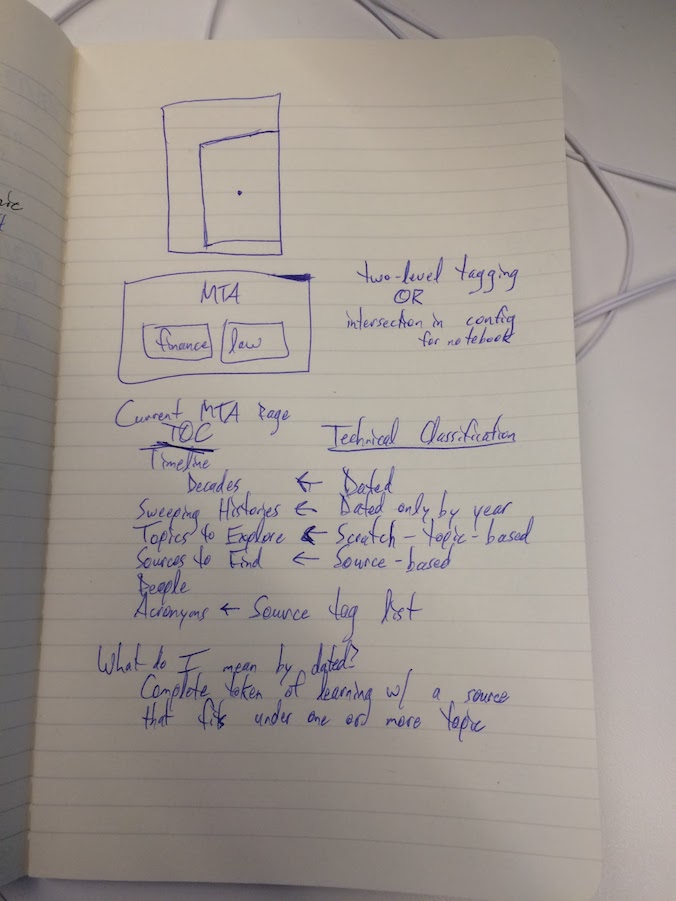 MTA
finance law
two-level tagging
OR
intersection in config
for notebook
Current MTA Page
TOC
Technical Classification
Timeline
Decades ← Dated
Sweeping Histories ← Dated only by year
Topics to Explore ← Scratch - topic-based
Sources to Find ← Source-based
People
Acronyms ← Source tag list
What do I mean by dated?
Complete token of learning w/ a source
that fits under one or more topic